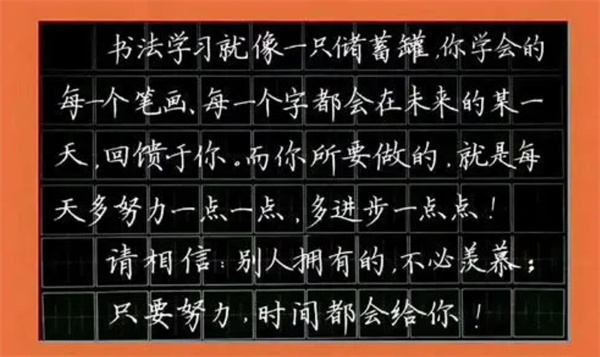 书法学习就像一只储蓄罐，你学会的
每一个笔画、每一个字都会在未来的某一
天，回馈于你。而你所要做的，就是每
天多努力一点一点，多进步一点点！
请相信：别人拥有的，不必羡慕；
只要努力，时间都会给你！